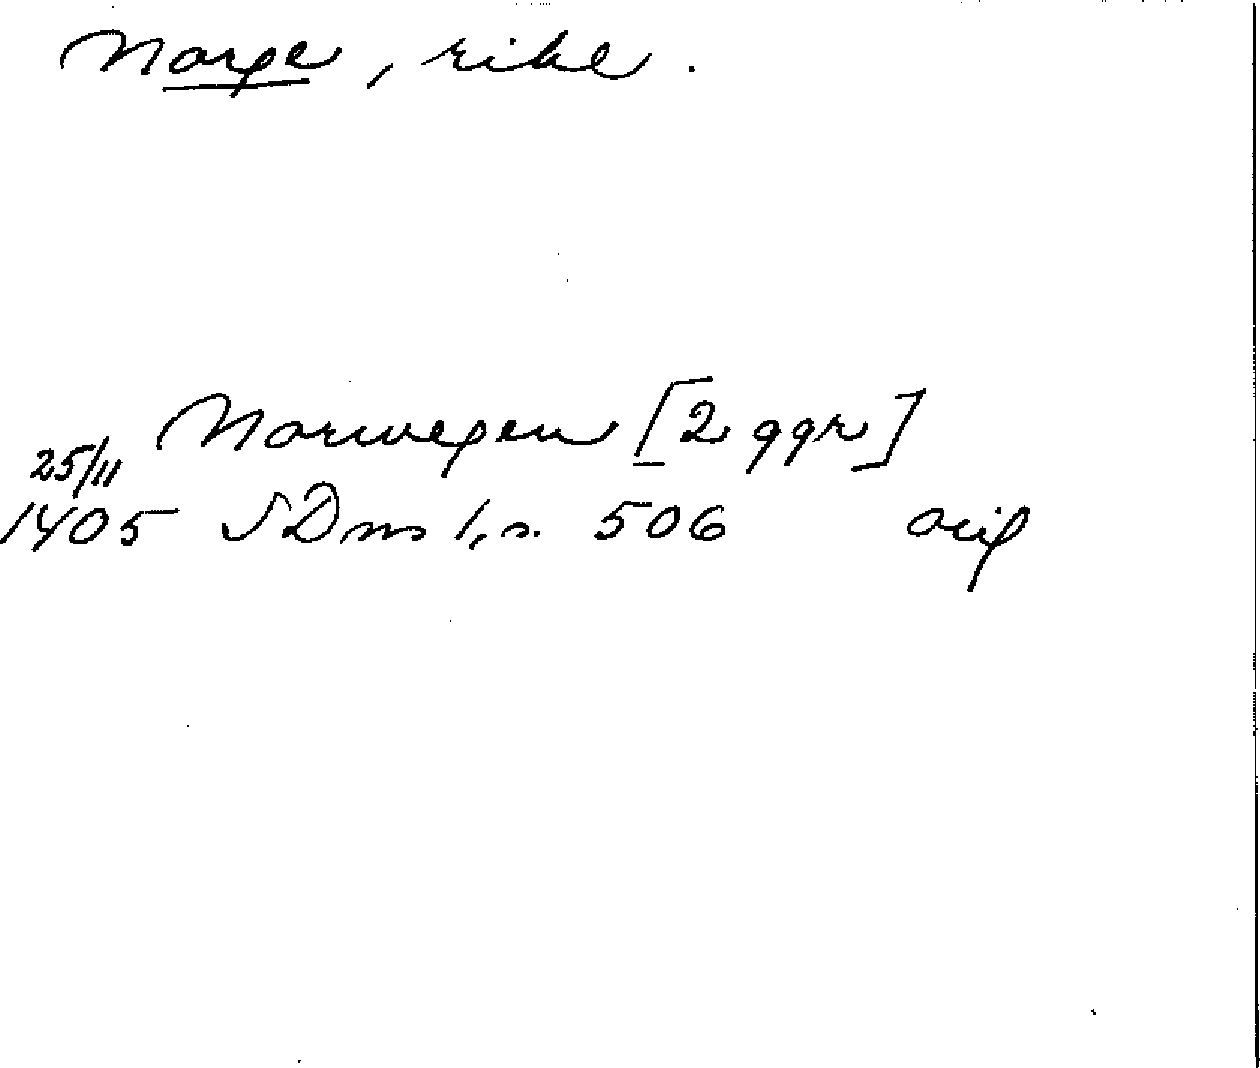 Norge, rike.
Norwegen [2 ggr]
25/11
1405 SDns 1, s. 506 orig